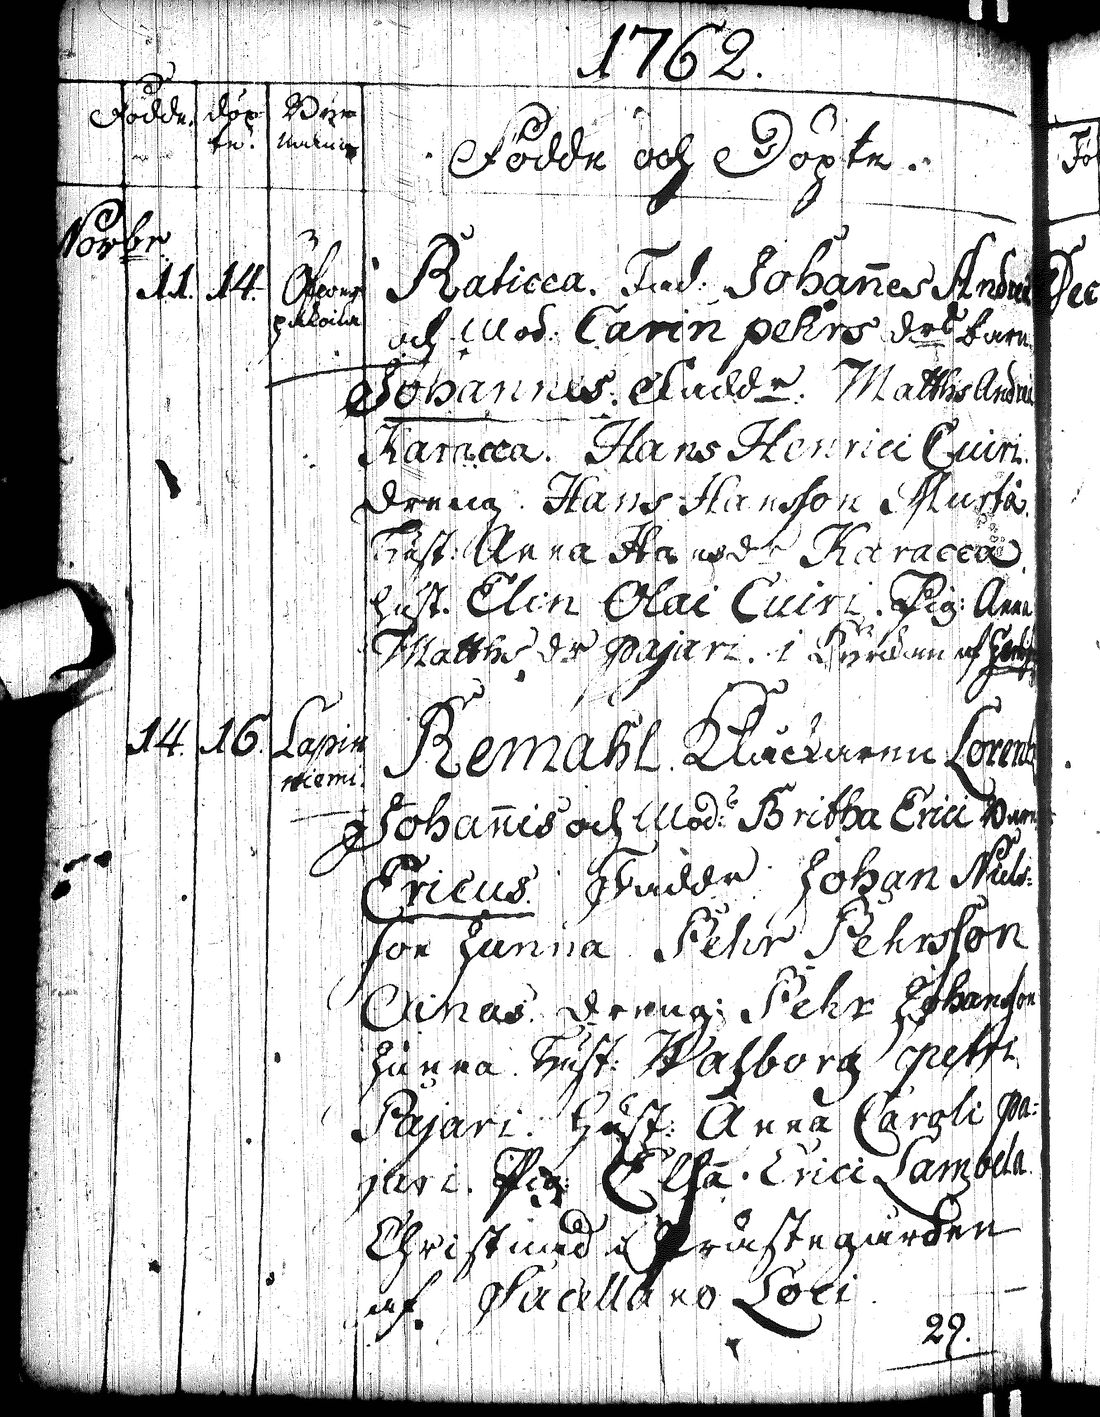 1762.
Födde. döp- Byar
te.
Födde och Döpte.
Novbr.
11. 14. Raticca. Fad: Johan̄es Andreæ
och Mod: Carin pehrs drs barn
Johannes. Fadde_r. Matths Andreæ
Karacca. Hans Henrici Cuiri.
dreng. Hans Hansson Murta.
Hust: Anna Hansdr Karacca.
Hust. Elin Olai Cuiri. Pig: Anna
Matths dr pajari. i Kyrckan af
14. 16. Lapin Remahl. Kluckaren Lorentz
niemi. Johan̄is och Mod: Britha Erici barn
Ericus. Faddr Johan Niels-
son Hanna Pehr Pehrsson
Ainas. dreng: Pehr Johansson
Hanna. Hust: Walborg petri
Pajari. Hust: Anna Caroli pa-
jari. Pig: Elsa Erici Lambela.
Christnad i Prästegården
af Sacellano Loci
29.
Föd
Dec